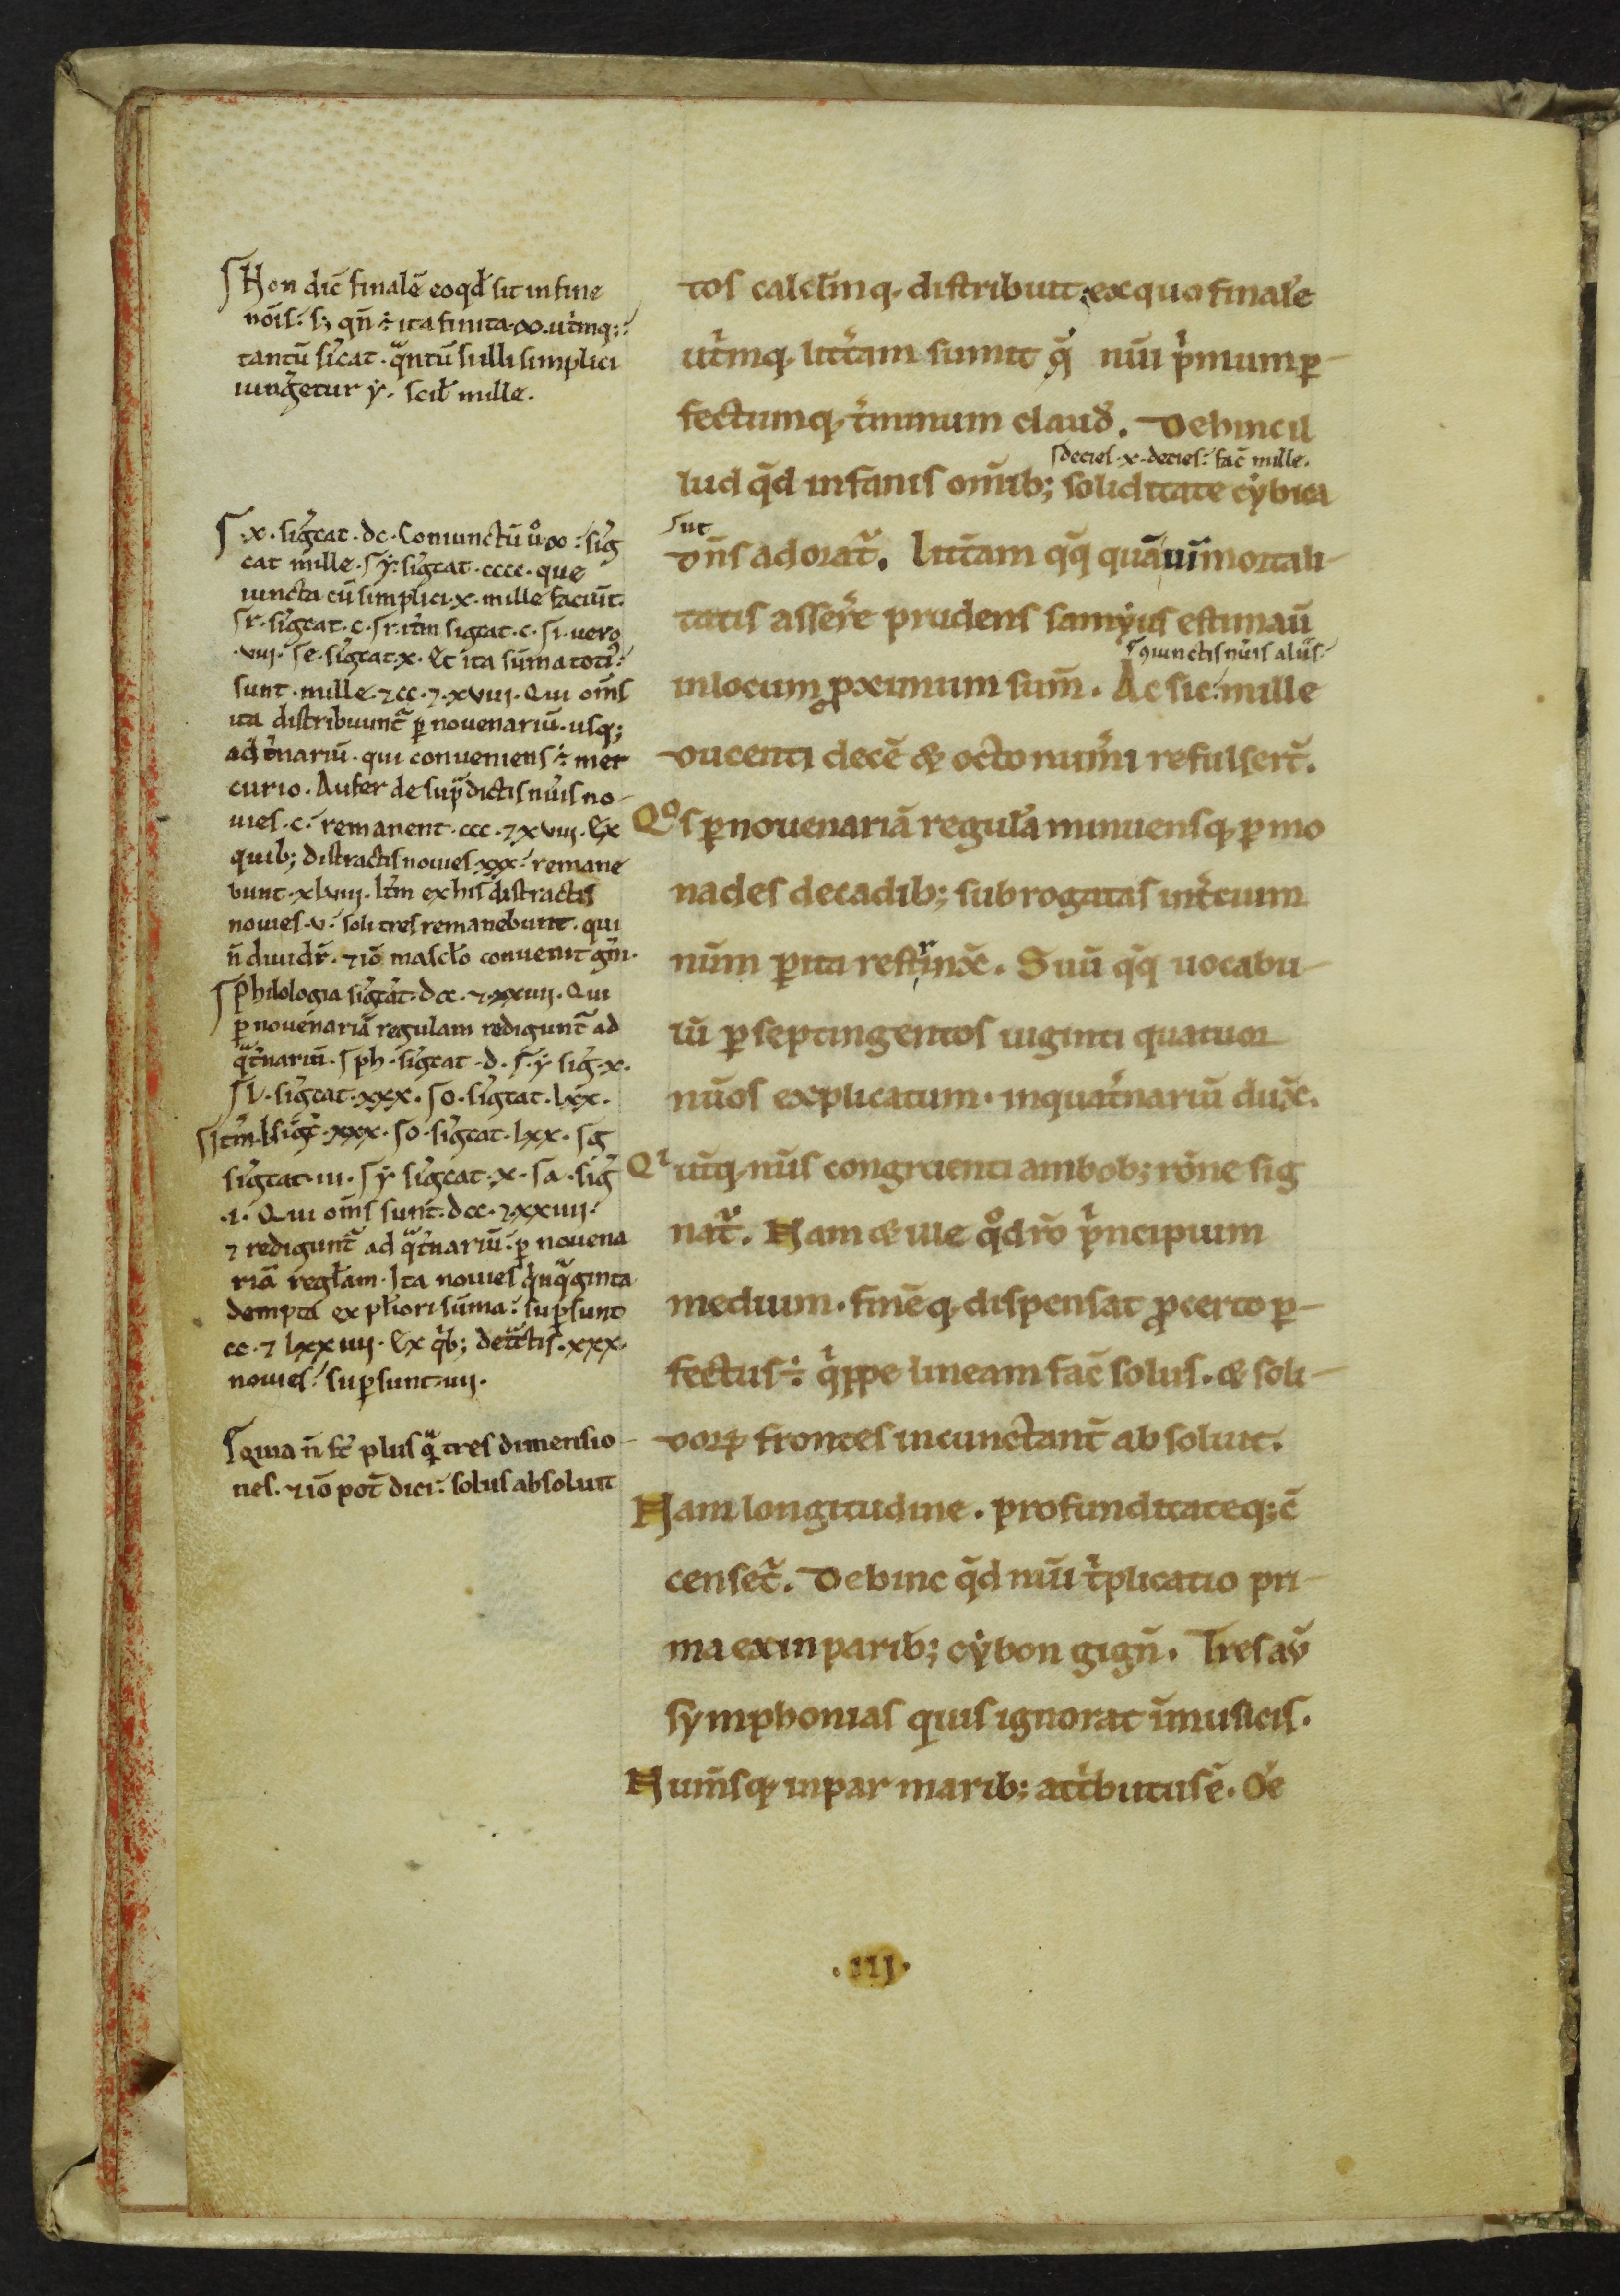 Non dic̄ finalē eo qđ sit in fine
nōis. s; qn̄ ÷ ita finita ꝏ. utͥmq;
tantū sīcat. qͣntū si illi simplici
iungͤetur ẏ. scił mille.
.x. sigͥcat. dc. Coniunctū ůꝏ. sigͥ
cat mille. ẏ. sigͥcat. cccc. que
iuncta cū simplici .x. mille faciūt.
r. sigͥcat. c. r. itͤm sigcat. c. i. uero
.viii. e. sigͥcat. x. Et ita sūma totiꝰ
sunt. mille. ⁊ cc. ⁊ xviii. Qui om̄s
ita distribuunt᷑ ꝑ nouenariū. usq;
ad tͥnariū. qui conueniens ÷ mer
curio. Aufer de supͣdictis nūis no-
uies .c. remanent .ccc. ⁊ xviii. Ex
quib; distractis nouies xxx. remane
bunt. xlviii. Itͤm ex his distractis
nouies .v. soli tres remanebunt. qui
n̄ diuidr̄. ⁊ iō mascło conuenit gn̄i.
Philologia sigͥcat. dcc. ⁊ xxiiii. Qui
ꝑ nouenariā regulam redigunt᷑ ad
qͣtͤnariū. ph. sigͥcat. d. ẏ sigͥ. x.
l. sigͥcat. xxx. o. sigͥcat. lxx.
itͤm. l. sigͥc̄. xxx. o. sigͥcat. lxx. g
sigͥcat. iii. ẏ sigͥcat. x. a. sigͥ
.i. Qui om̄s sunt. dcc. ⁊ xxiiii.
⁊ redigunt᷑ ad qͣtͤnariū. ꝑ nouena
riā regłam. Ita nouies qͥnqͣginta
demptis ex pͥori sūma. suꝑsunt
cc. ⁊ lxxiiii. Ex qͥb; detͣctis. xxx.
nouies. suꝑsunt. iiii.
quia n̄ st̄ plus qͣ̄ tres dimensio-
nes. ⁊ iō pot̄ dici. solus absoluit
tos calclīnq. distribuit. ex quo finale
utͥmq. litt̄am sumit q̇ nūi pͥmum ꝑ-
fectumq. tͥminum clauđ. Dehinc il
decies .x. decies. fac̄ mille.
lud qd̄ in fanis om̄ib; soliditate cẏbica
ut
dn̄s adorat᷑. litt̄am qq̄ quā uī mortali-
tatis asserͤe prudens samẏus estimau̅
ɔiunctis nūis aliis
in locum ꝓximum sum̄. Ac sic. mille
ducenti decē & octo numͥi refulsert̄.
Qͦs ꝑ nouenariā regułā minuensq. ꝑ mo
nades decadib; subrogatas intͤ cum
nūm ꝑita restrinx̄. Suū qq̄ uocabu-
lū ꝑ septingentos uiginti quatuor
nūos explicatum. in quatͤnariū dux̄.
Qͥ ut̄q. nūs congruenti ambob; rōne sig
nat᷑. Nam & ille qͦd rō pͥncipium
medium. finēq. dispensat ꝓcerto ꝑ-
fectus ÷. qͥppe lineam fac̄ solus. & soli-
doꝝ frontes incunctant̄ absoluit.
Nam longitudine. profunditateq; c̄
censet᷑. Dehinc qd̄ nūi tͥplicatio pri-
ma ex inparib; cẏbon gign̄. Tres au̅
sẏmphonias quis ignorat in musicis.
Num̄sq. inpar marib; attͥbutus ē. Oē
.iii.